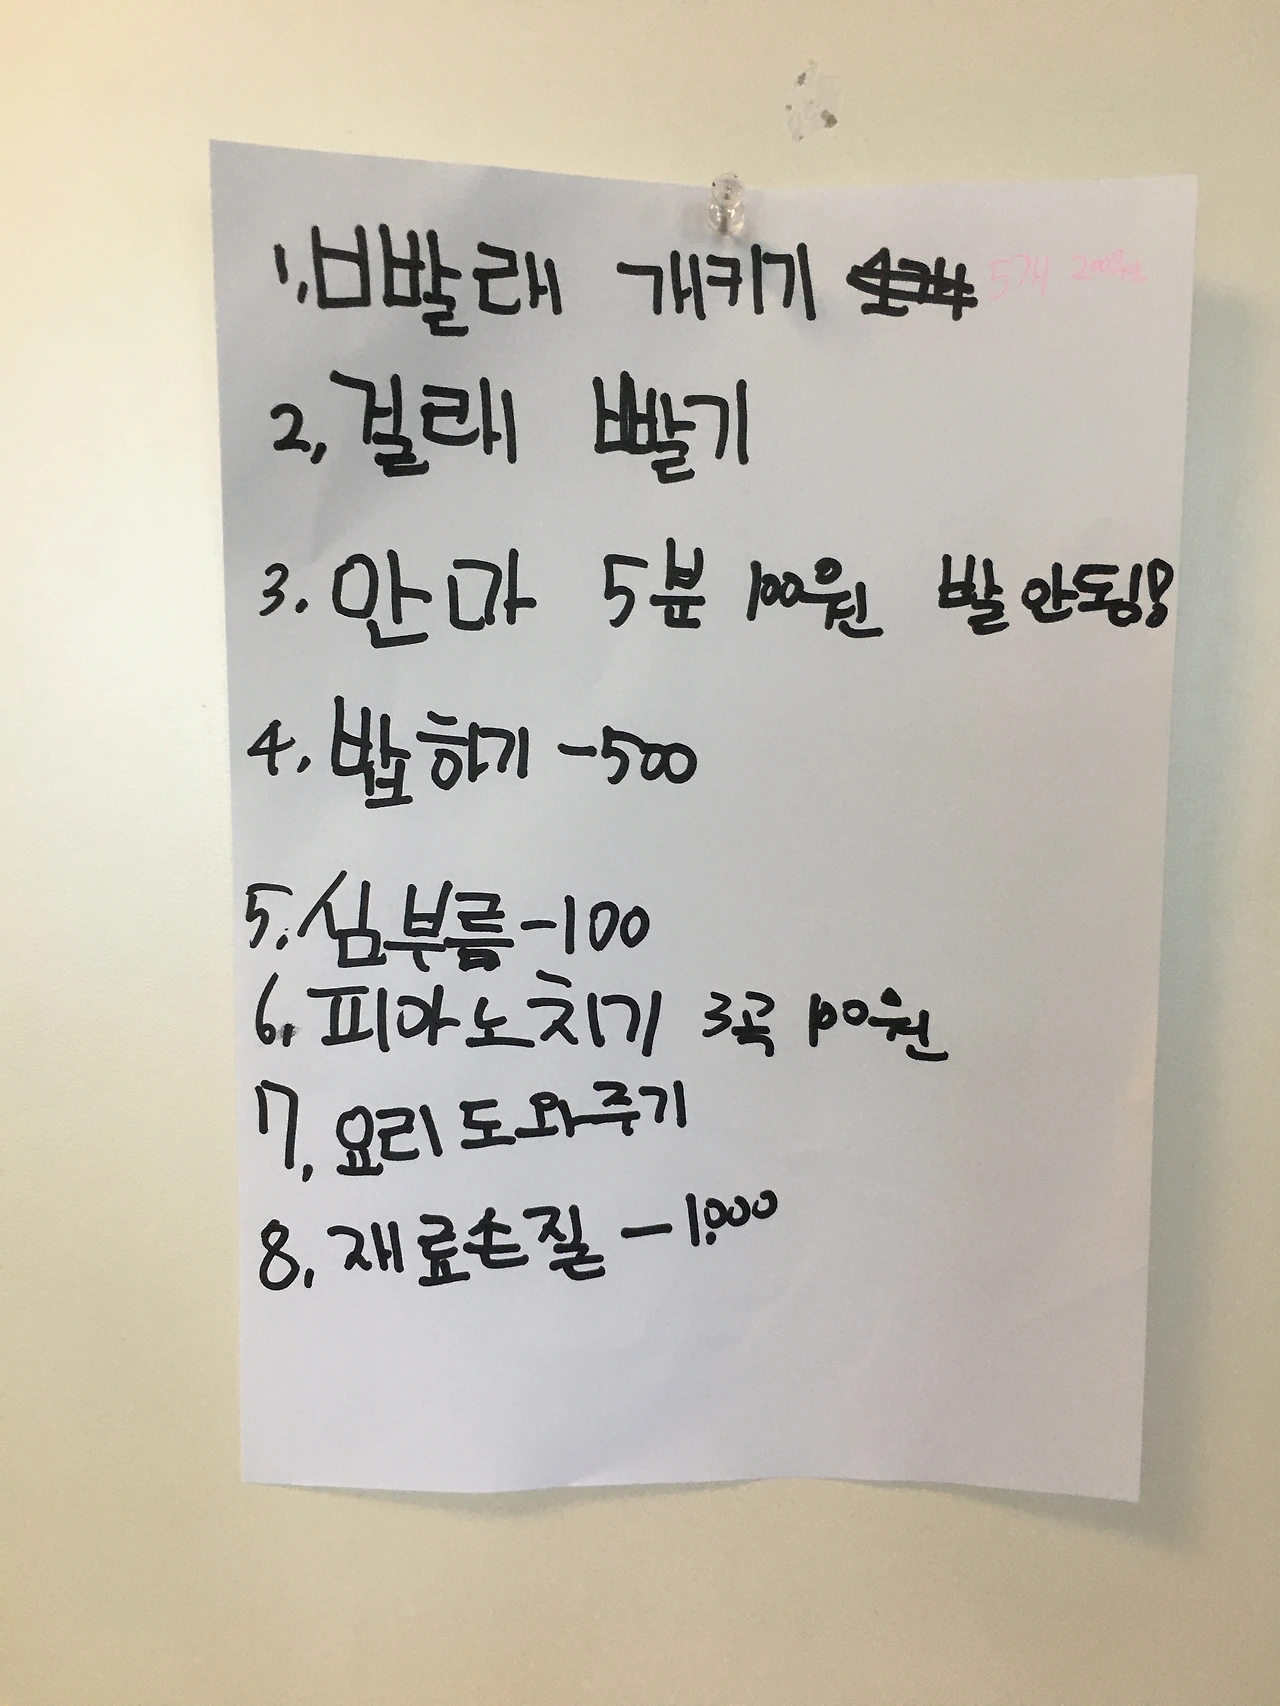 1. 빨래 개키기 5개 200원
2, 걸래 빨기
3. 안마 5분 100원 발 안됨!
4. 밥하기 -500
5. 심부름 -100
6. 피아노치기 3곡 100원
7, 요리 도와주기
8, 재료손질 -1,000